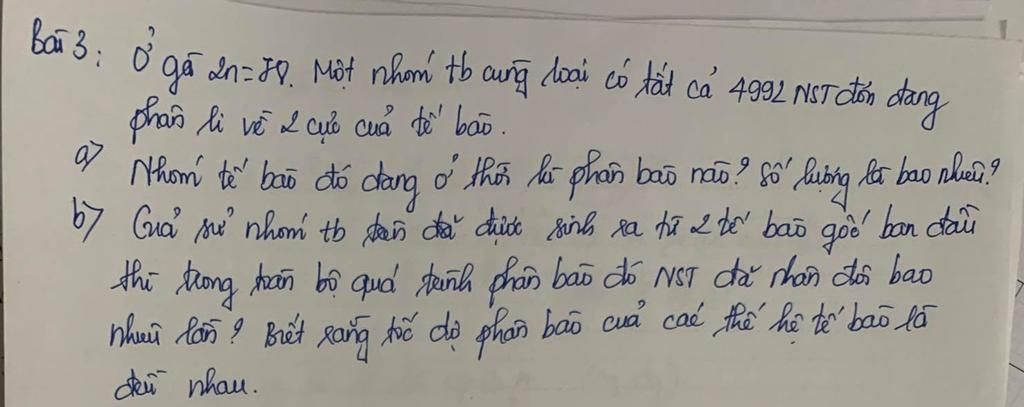 Bài 3: Ở gà 2n=78. Một nhóm tb cùng loại có tất cả 4992 NST đơn đang
phân li về 2 cực của tế bào.
a) Nhóm tế bào đó đang ở thời kì phân bào nào? Số lượng là bao nhiêu?
b) Giả sử nhóm tb trên đã được sinh ra từ 2 tế bào gốc ban đầu
thì trong toàn bộ quá trình phân bào đó NST đã nhân đôi bao
nhiêu lần? Biết rằng tốc độ phân bào của các thế hệ tế bào là
đều nhau.